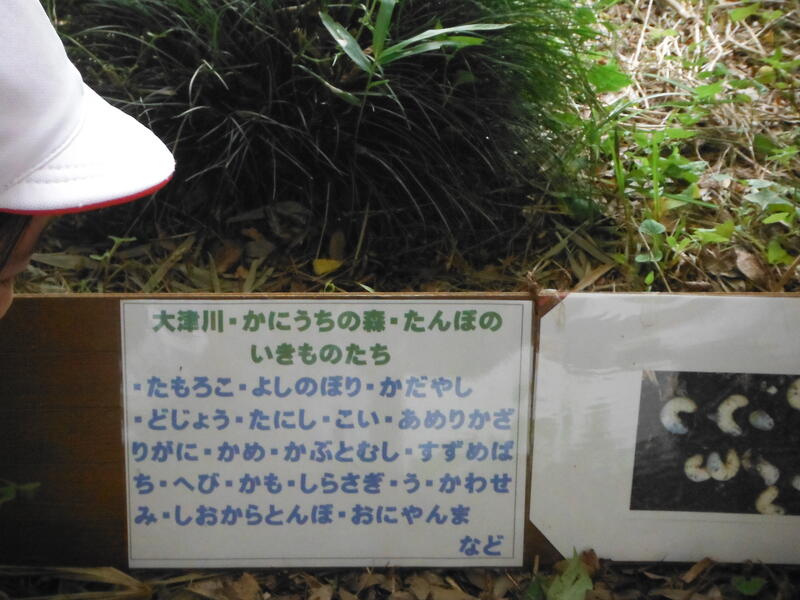 大津川・かにうちの森・たんぼの
いきものたち
・たもろこ・よしのぼり・かだやし
・どじょう・たにし・こい・あめりかざ
りがに・かめ・かぶとむし・すずめば
ち・へび・かも・しらさぎ・う・かわせ
み・しおからとんぼ・おにやんま
など